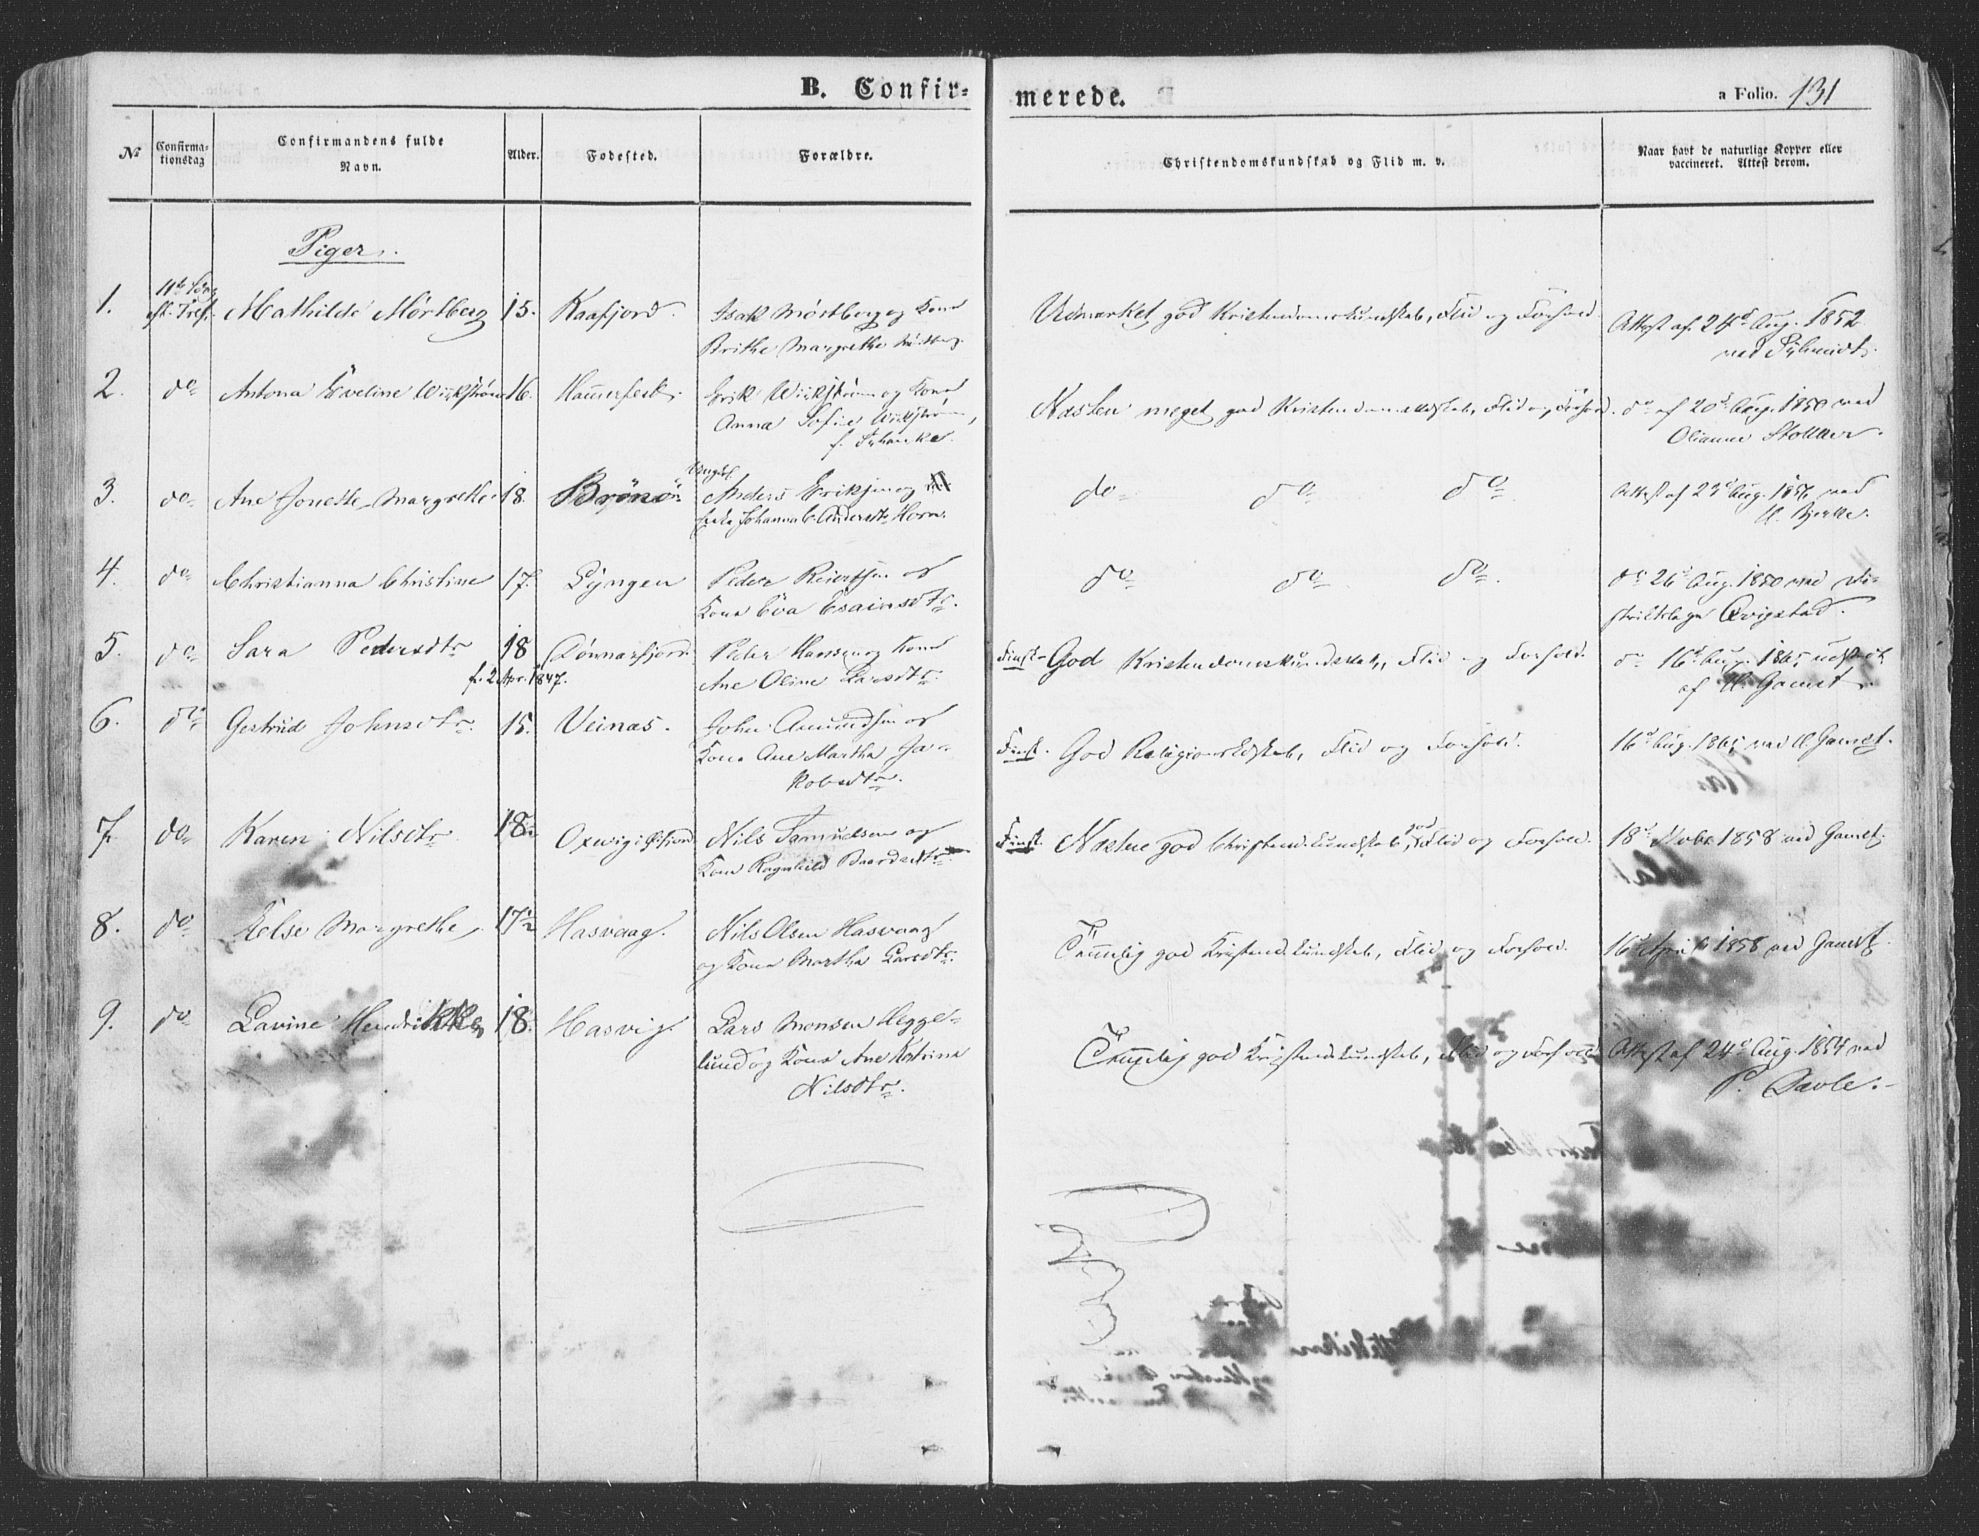 B. Confir-
merede.
a Folio. 131
№
Confirma-
tionsdag
Confirmandens fulde
Navn.
Alder.
Fødested.
Forældre.
Christendomskundskab og Flid m. v.
Naar havt de naturlige Kopper eller
vaccineret. Attest derom.
Piger.
1. Mathilde Mörtberg 15. Kaafjord. Isak Mörtberg og Kone
Brithe Margrethe
Udmærket god Kristendomskundskab, Flid og Forhold.
Attest af 24d Aug. 1852
ved Schmidt.
2. do Antona Eveline Wickstrøm 16. Hammerfest. Erik Wickstrøm og Kone
Anna Sofie Wickstrøm,
f. Schanke.
Næsten meget god Kristendomskdskab, Flid og Forhold.
do af 20d Aug. 1850 ved
Olianne
3. do Ane Jonette Margrethe 18. Brönö Anders Eriksen og
Johanna Andersdtr Horn.
do do do
Attest af 23d Aug. ved
Bjerke.
4. do Christianna Christine 17. Lyngen Peder Reiertsen og
Kone Eva Esaiasdtr.
do do do
do 26d Aug. 1850 ved Di-
striktslæge Qvigstad.
5. do Sara Pedersdtr 18 Dønnæsfjord Peder Hansen og Kone
f. 2 Apr. 1847.
Ane Oline Larsdtr.
Finsk- God Kristendomskundskab, Flid og Forhold.
do 16d Aug. 1865 udstedt
af H. Gamst.
6. do Gertrud Johnsdtr. 15. Veinæs. John Amundsen og
Kone Ane Martha Ja-
kobsdtr.
Finsk. God Religionskdskab, Flid og Forhold.
16d Aug. 1865 ved H. Gamst.
7. do Karen Nilsdtr 18½ Nils Samuelsen og
Kone Ragnhild Baardsdtr
Finsk. Næsten god Christendskundskab, god Flid og Forhold.
18d Novbr 1858 ved Gamst.
8. do Else Margrethe 17½ Hasvaag. Nils Olsen Hasvaag
og Kone Martha Larsdtr.
Temmelig god Kristendskundskab, Flid og Forhold.
16d April 1858 ved Gamst.
9. do Lavine Hendrikke 18. Hasvig. Lars Monsen Hegge-
lund og Kone Ane Katrina
Nilsdtr.
Temmelig god Kristendskundskab, Flid og Forhold
Attest af 24d Aug. 1854 ved
P. Davle.